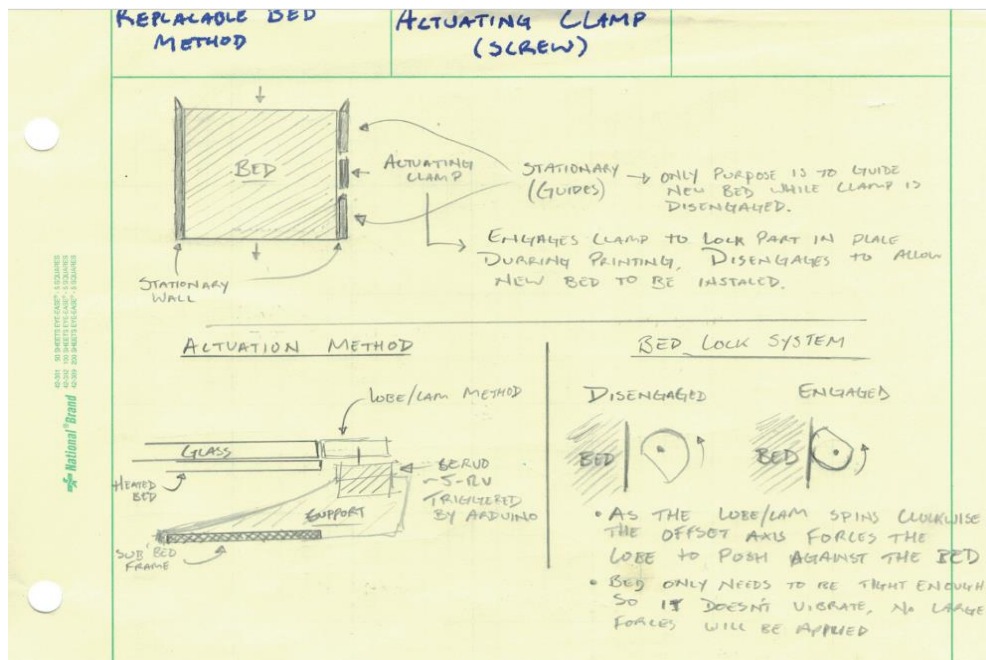 REPLACABLE BED
METHOD
ACTUATING CLAMP
(SCREW)
BED
ACTUATING
CLAMP
STATIONARY
(GUIDES)
→ ONLY PURPOSE IS TO GUIDE
NEW BED WHILE CLAMP IS
DISENGAGED.
ENGAGES CLAMP TO LOCK PART IN PLACE
DURRING PRINTING, DISENGAGES TO ALLOW
NEW BED TO BE INSTALED.
STATIONARY
WALL
ACTUATION METHOD
LOBE/CAM METHOD
GLASS
HEATED
BED
SERVO
TRIGGERED
BY ARDUINO
SUPPORT
SUB BED
FRAME
BED LOCK SYSTEM
DISENGAGED
ENGAGED
BED
BED
• AS THE LOBE/CAM SPINS CLOCKWISE
THE OFFSET AXIS FORCES THE
LOBE TO PUSH AGAINST THE BED
• BED ONLY NEEDS TO BE TIGHT ENOUGH
SO IT DOESN'T VIBRATE, NO LARGE
FORCES WILL BE APPLIED
National Brand